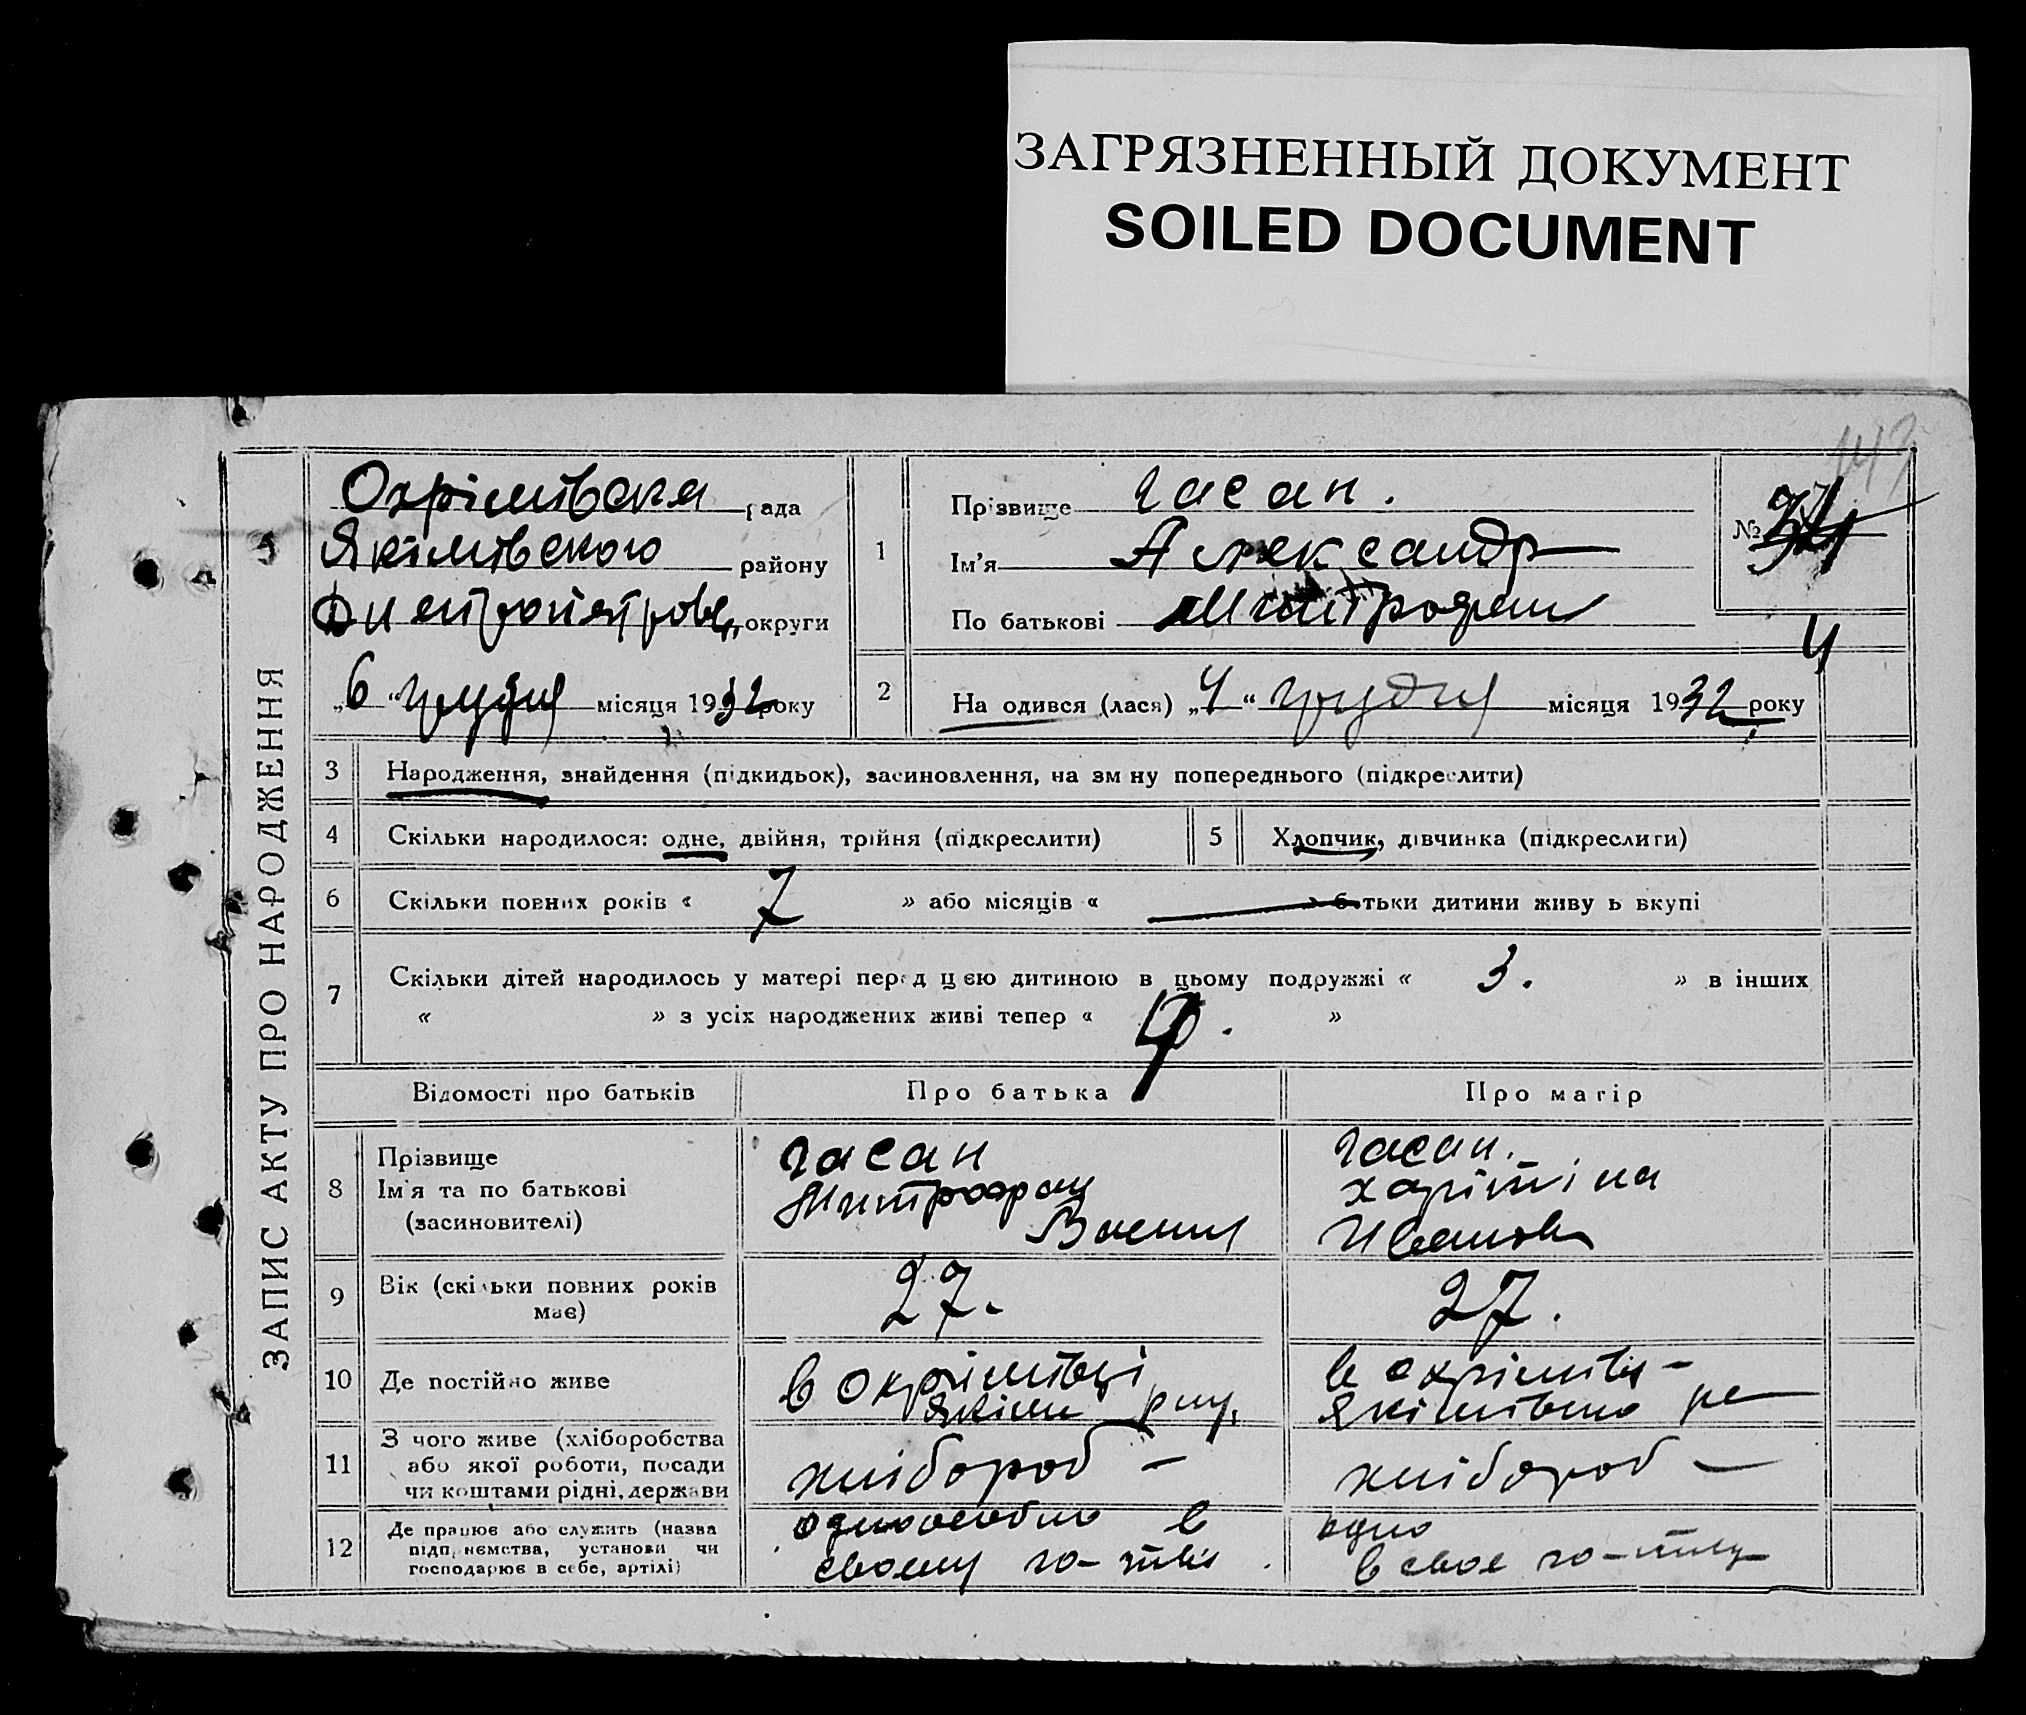 ЗАГРЯЗНЕННЫЙ ДОКУМЕНТ
SOILED DOCUMENT
ЗАПИС АКТУ ПРО НАРОДЖЕННЯ
Охрімівська рада
Якімівського району
Дніпропетровс округи
„6“ грудня місяця 1932 року
1
Прізвище Гасан.
Ім’я Александр
По батькові Митрофан
№
4
2
На одився (лася) „4“ грудня місяця 1932 року
3 Народження, знайдення (підкидьок), засиновлення, на зм ну попереднього (підкреслити)
4 Скільки народилося: одне, двійня, трійня (підкреслити)
5 Хлопчик, дівчинка (підкреслити)
6 Скільки повних років « 7 » або місяців « — » б тьки дитини живу ь вкупі
7 Скільки дітей народилось у матері перед цією дитиною в цьому подружжі « 3. » в інших
« » з усіх народжених живі тепер « »
Відомості про батьків Про батька Про матір
8 Прізвище
Ім’я та по батькові
(засиновителі)
Гасан
Митрофан
Васил
Гасан.
Харітіна
Иванов
9 Вік (скільки повних років
має)
27.
27.
10 Де постійно живе
в Охрімівці
Якім рну.
в Охрімівці –
Якімівсько
11 З чого живе (хліборобства
або якої роботи, посади
чи коштами рідні, держави
хлібороб –
хлібороб –
12 Де працює або служить (назва
підп иємства, установи чи
господарює в себе, артілі)
одноособно в
своему го-тві
одно
в свое го-